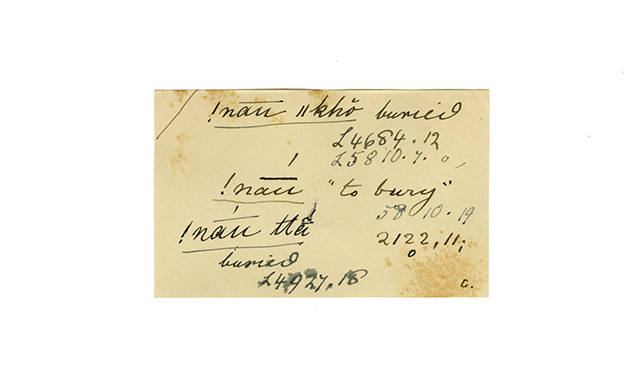 !nāu ǁkhŏ buried
L4684.12
L5810.7.0,
!nāu "to bury"
5810.19
!nấu ttā̆ 2122,11;
buried
L4927.18
C.